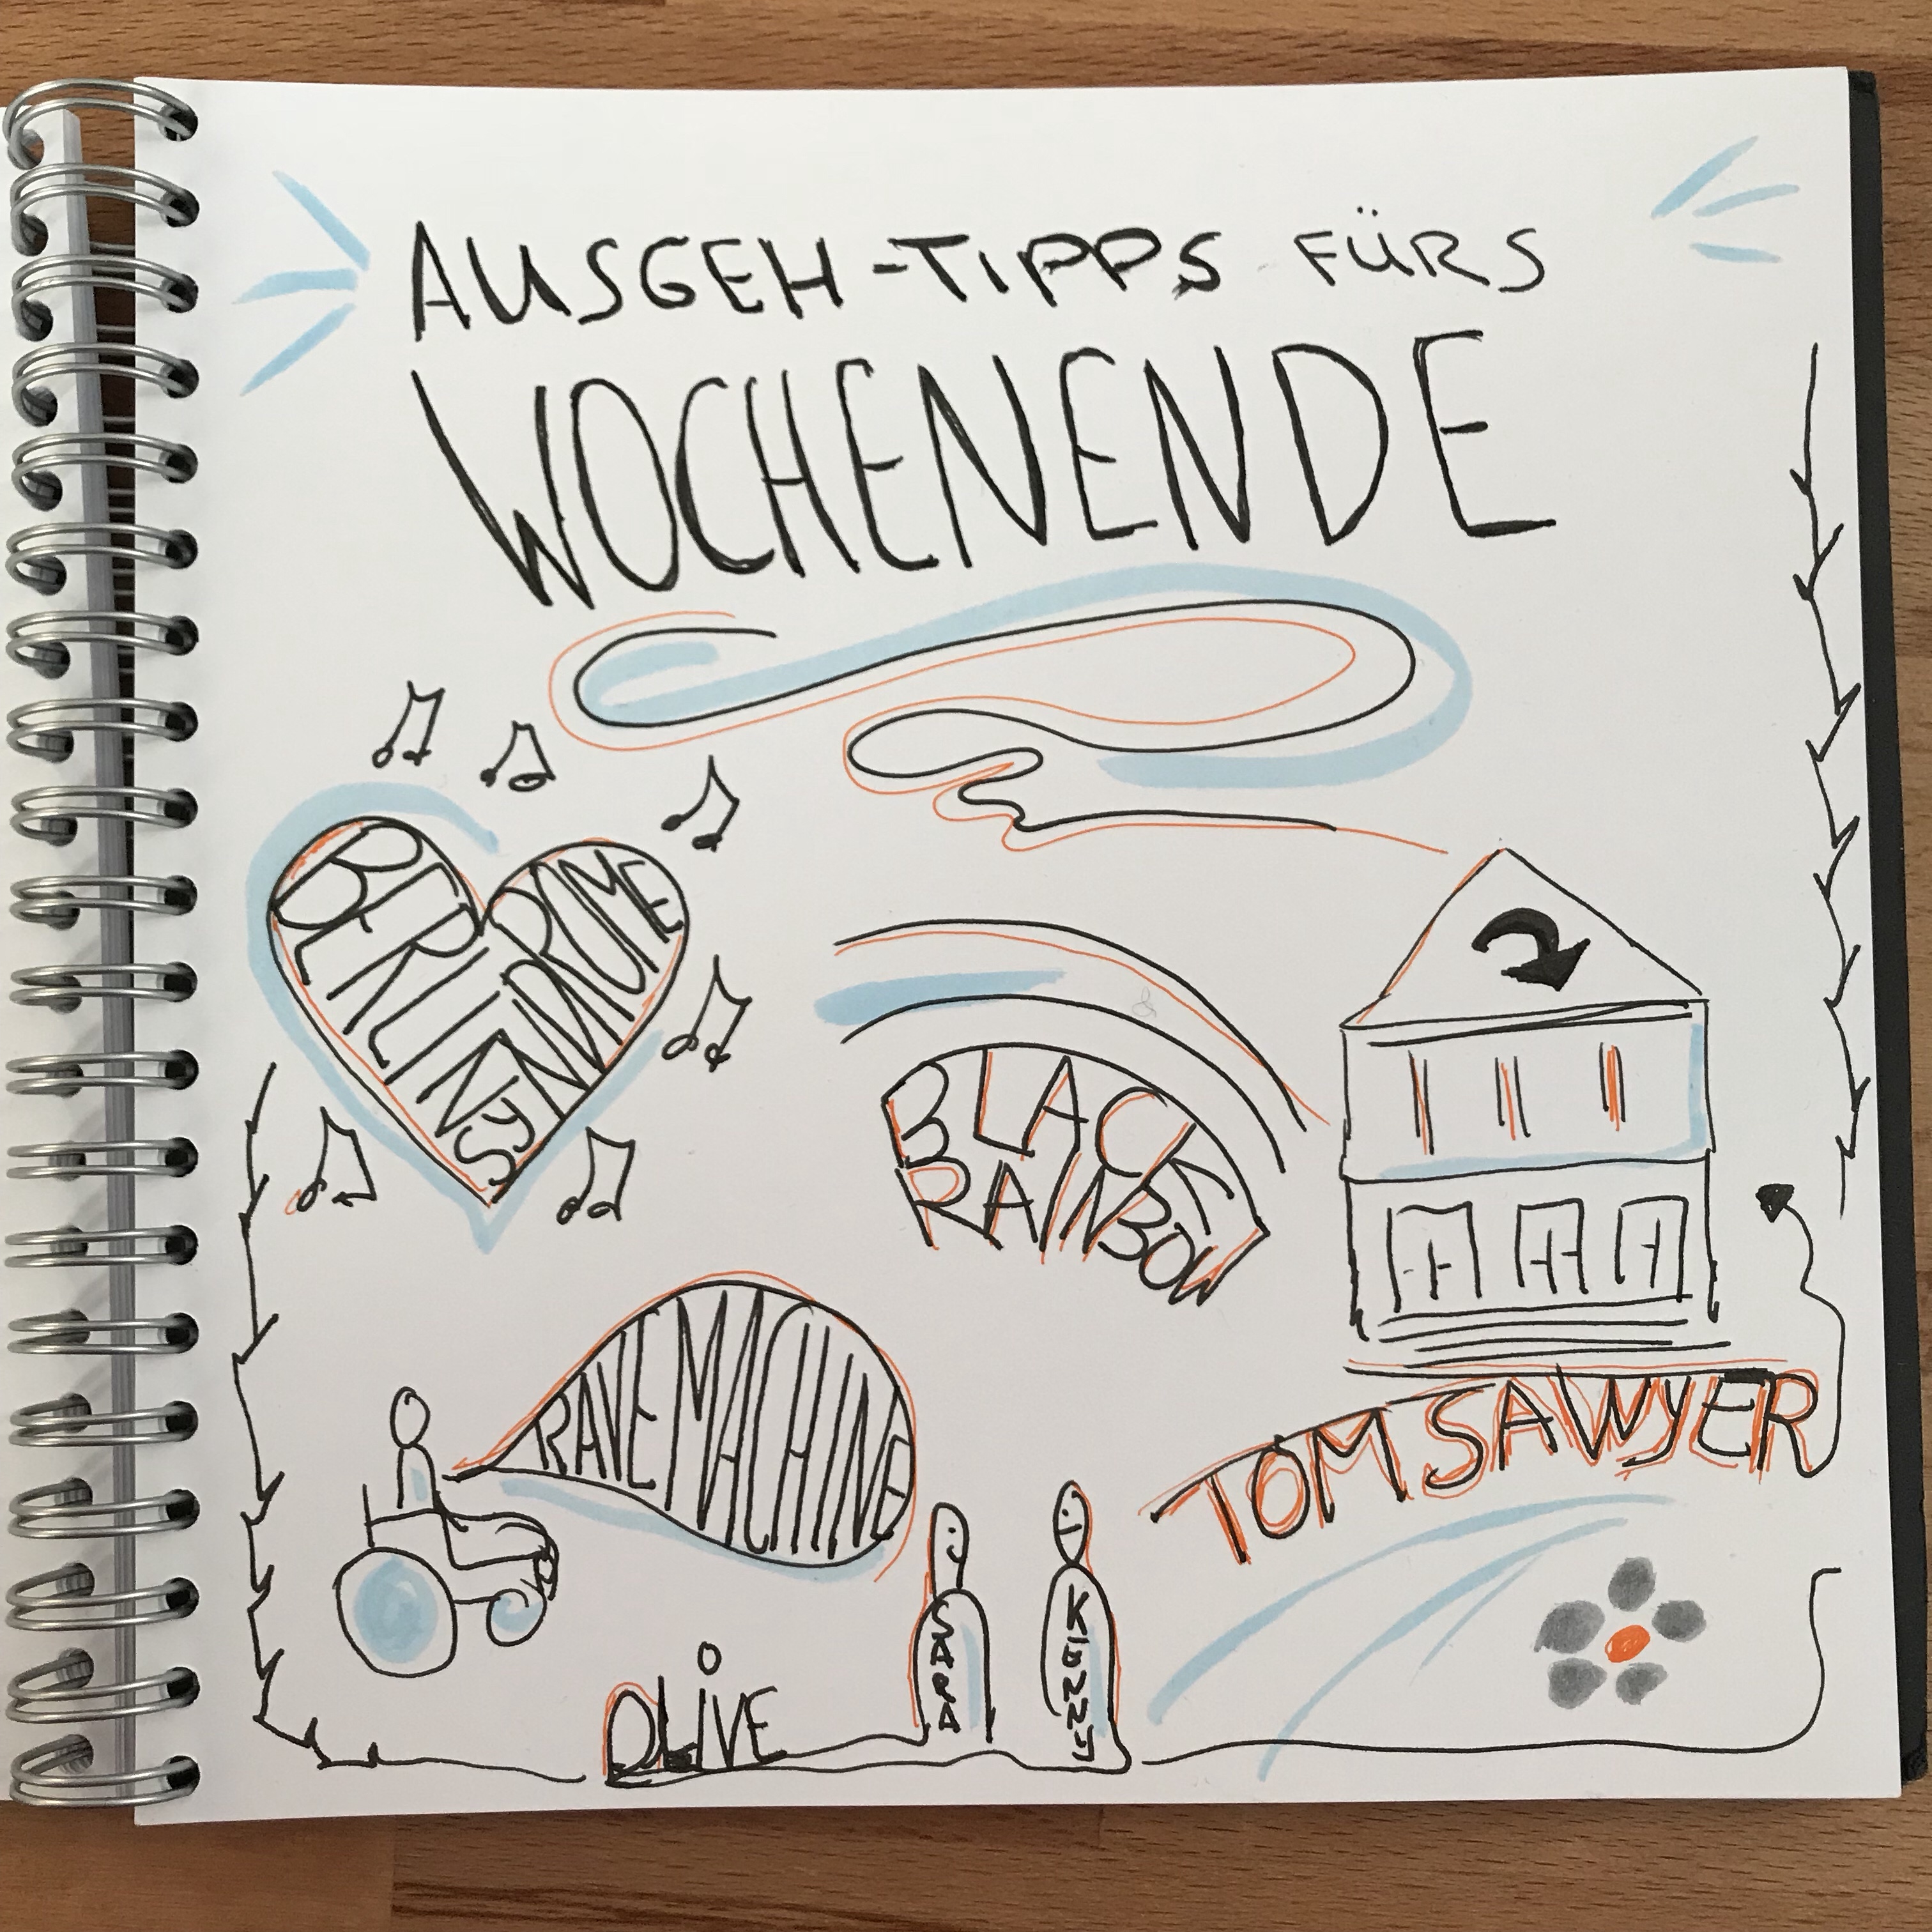 AUSGEH-TIPPS FÜRS
WOCHENENDE
BERLIN SYNDROME
BLACK
RAINBOW
RAVE MACHINE
TOM SAWYER
SARA
KENNY
OLIVE